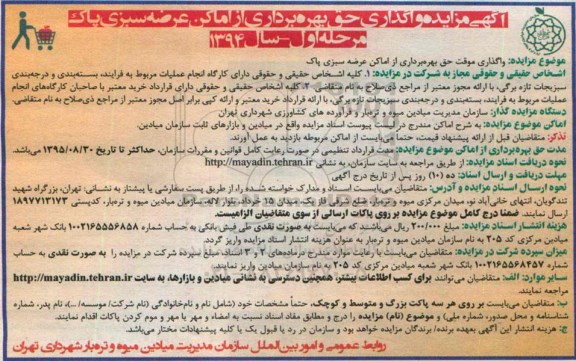 آگهی مزایده واگذاری حق بهره‌برداری از اماکن عرضه سبزی پاک
مرحله اول - سال ۱۳۹۴
موضوع مزایده: واگذاری موقت حق بهره‌برداری از اماکن عرضه سبزی پاک
اشخاص حقیقی و حقوقی مجاز به شرکت در مزایده: ۱. کلیه اشخاص حقیقی و حقوقی دارای کارگاه انجام عملیات مربوط به فرآیند، بسته‌بندی و درجه‌بندی
سبزیجات تازه برگی، با ارائه مجوز معتبر از مراجع ذی‌صلاح به نام متقاضی ۲. کلیه اشخاص حقیقی و حقوقی دارای قرارداد خرید معتبر با صاحبان کارگاه‌های انجام
عملیات مربوط به فرآیند، بسته‌بندی و درجه‌بندی سبزیجات تازه برگی، با ارائه قرارداد خرید معتبر و ارائه کپی برابر اصل مجوز معتبر از مراجع ذی‌صلاح به نام متقاضی.
دستگاه مزایده گذار: سازمان مدیریت میادین میوه و تره‌بار و فرآورده های کشاورزی شهرداری تهران
اماکن موضوع مزایده: به شرح اماکن مندرج در لیست پیوست اسناد مزایده واقع در میادین و بازارهای ثابت سازمان میادین.
تذکر: متقاضیان قبل از ارائه پیشنهاد قیمت، حتماً می‌بایست از اماکن مربوطه بازدید به عمل آورند.
مدت حق بهره‌برداری از اماکن موضوع مزایده: مدت قرارداد تنظیمی در صورت رعایت کامل قوانین و مقررات سازمان، حداکثر تا تاریخ ۱۳۹۵/۰۸/۳۰ می‌باشد.
نحوه دریافت اسناد مزایده: از طریق مراجعه به سایت سازمان، به نشانی http://mayadin.tehran.ir
مهلت دریافت و ارسال اسناد: ده (۱۰) روز پس از تاریخ درج آگهی
نحوه ارسال اسناد مزایده و آدرس: متقاضیان می‌بایست اسناد و مدارک خواسته شده را، از طریق پست سفارشی یا پیشتاز به نشانی: تهران، بزرگراه شهید
تندگویان، انتهای خانی‌آباد نو، میدان مرکزی میوه و تره‌بار، ضلع شرقی فاز یک، میدان ۱۵ خرداد، بلوار لاله، سازمان میادین میوه و تره‌بار، کدپستی ۱۸۹۷۷۱۳۱۷۳
ارسال نمایند. ضمنا درج کامل موضوع مزایده بر روی پاکات ارسالی از سوی متقاضیان الزامیست.
هزینه انتشار اسناد مزایده: مبلغ ۲۰۰/۰۰۰ ریال می‌باشد که می‌بایست به صورت نقدی طی فیش بانکی به حساب شماره ۱۰۰۲۱۶۵۵۵۶۸۵۸ بانک شهر شعبه
میادین مرکزی کد ۲۰۵ به نام سازمان میادین میوه و تره‌بار به عنوان هزینه انتشار اسناد مزایده واریز گردد.
میزان سپرده شرکت در مزایده: متقاضیان می‌بایست با رعایت موارد مندرج درماده‌های ۲ و ۳ اسناد، مبلغ سپرده شرکت در مزایده را به صورت نقدی به حساب
شماره ۱۰۰۲۱۶۵۵۶۸۴۵۷ بانک شهر شعبه میادین مرکزی کد ۲۰۵ به نام سازمان میادین واریز نمایند.
سایر موارد: الف: متقاضیان می توانند برای کسب اطلاعات بیشتر، همچنین دسترسی به نشانی میادین و بازارها، به سایت http://mayadin.tehran.ir
مراجعه نمایند.
ب: متقاضیان می‌بایست بر روی هر سه پاکت بزرگ و متوسط و کوچک، حتماً مشخصات خود (شامل نام و نام‌خانوادگی (نام شرکت/ موسسه/ ...)، نام پدر، شماره
شناسنامه و محل صدور، شماره ملی) و موضوع (نام) مزایده را درج و مطابق مفاد اسناد نسبت به امضاء و مهر یا مهر و موم کردن پاکات اقدام نمایند.
ج: هزینه انتشار این آگهی بعهده برنده/ برندگان مزایده خواهد بود و سازمان در رد یا قبول یک یا کلیه پیشنهادات مختار می‌باشد.
روابط عمومی و امور بین‌الملل سازمان مدیریت میادین میوه و تره‌بار شهرداری تهران